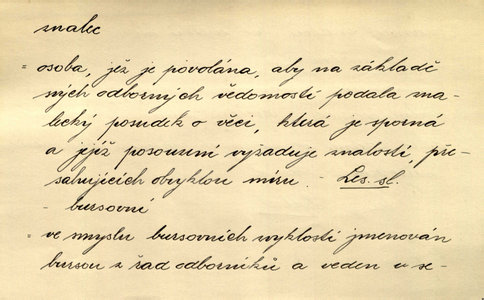 znalec
= osoba, jež je povolána, aby na základě
svých odborných vědomostí podala zna-
lecký posudek o věci, která je sporná
a jejíž posouzení vyžaduje znalostí, pře-
sahujících obvyklou míru. - Les. sl.
- bursovní
= ve smyslu bursovních vyklostí jmenován
bursou z řad odborníků a veden v se-